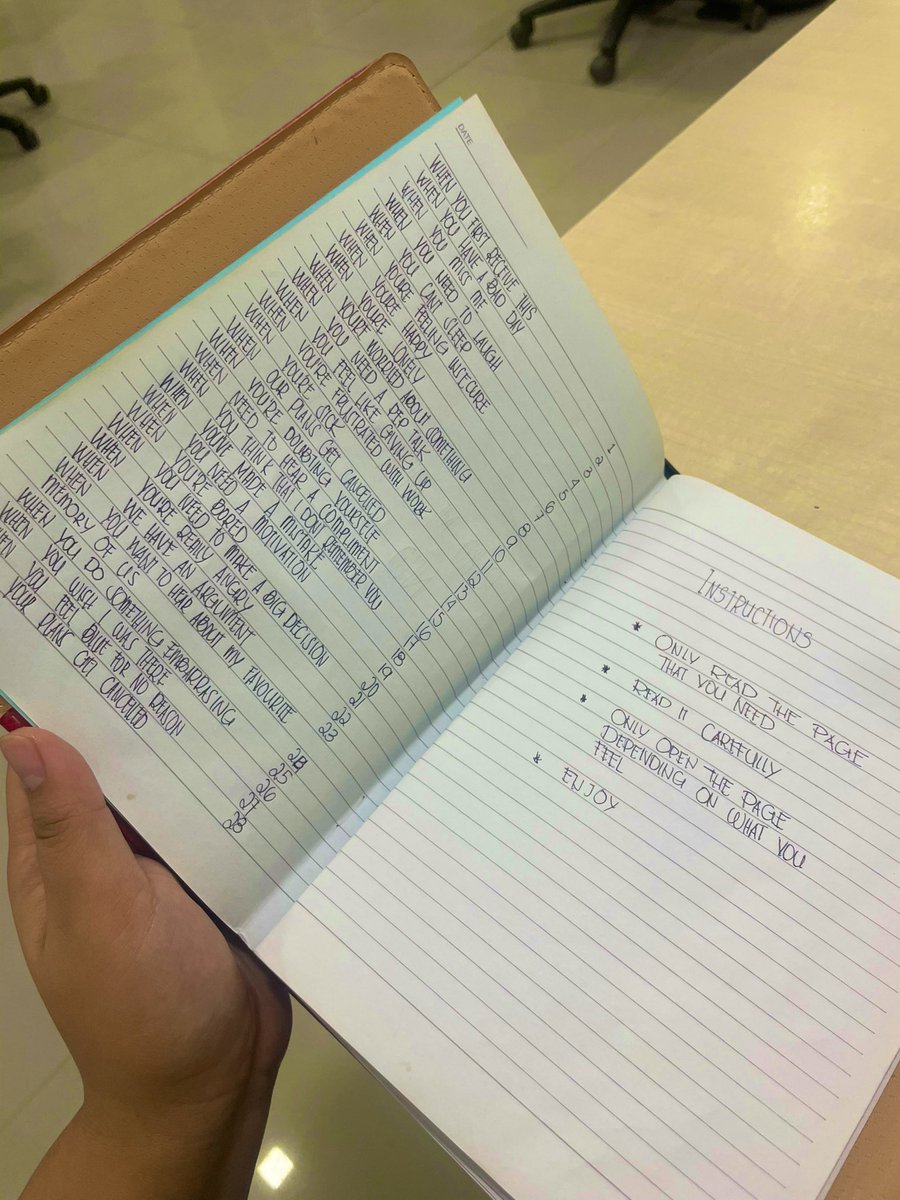 DATE
WHEN YOU FIRST RECEIVE THIS 1
WHEN YOU HAVE A BAD DAY 2
WHEN YOU MISS ME 3
WHEN YOU NEED TO LAUGH 4
WHEN YOU CAN'T SLEEP 5
WHEN YOU'RE FEELING INSECURE 6
WHEN YOU'RE HAPPY 7
WHEN YOU'RE LONELY 8
WHEN YOU'RE WORRIED ABOUT SOMETHING 9
WHEN YOU NEED A PEP TALK 10
WHEN YOU FEEL LIKE GIVING UP 11
WHEN YOU'RE FRUSTRATED WITH WORK 12
WHEN YOU'RE SICK 13
WHEN OUR PLANS GET CANCELLED 14
WHEN YOU'RE DOUBTING YOURSELF 15
WHEN YOU NEED TO HEAR A COMPLIMENT 16
WHEN YOU THINK THAT I DON'T REMEMBER YOU 17
WHEN YOU'VE MADE A MISTAKE 18
WHEN YOU NEED A MOTIVATION 19
WHEN YOU'RE BORED 20
WHEN YOU NEED TO MAKE A BIG DECISION 21
WHEN YOU'RE REALLY ANGRY 22
WHEN WE HAVE AN ARGUMENT 23
WHEN YOU WANT TO HEAR ABOUT MY FAVOURITE
MEMORY OF US 24
WHEN YOU DO SOMETHING EMBARRASING 25
WHEN YOU WISH I WAS HERE 26
WHEN YOU FEEL BLUE FOR NO REASON 27
YOUR PLANS GOT CANCELLED 28
INSTRUCTIONS
* ONLY READ THE PAGE
THAT YOU NEED
* READ IT CAREFULLY
* ONLY OPEN THE PAGE
DEPENDING ON WHAT YOU
FEEL
* ENJOY